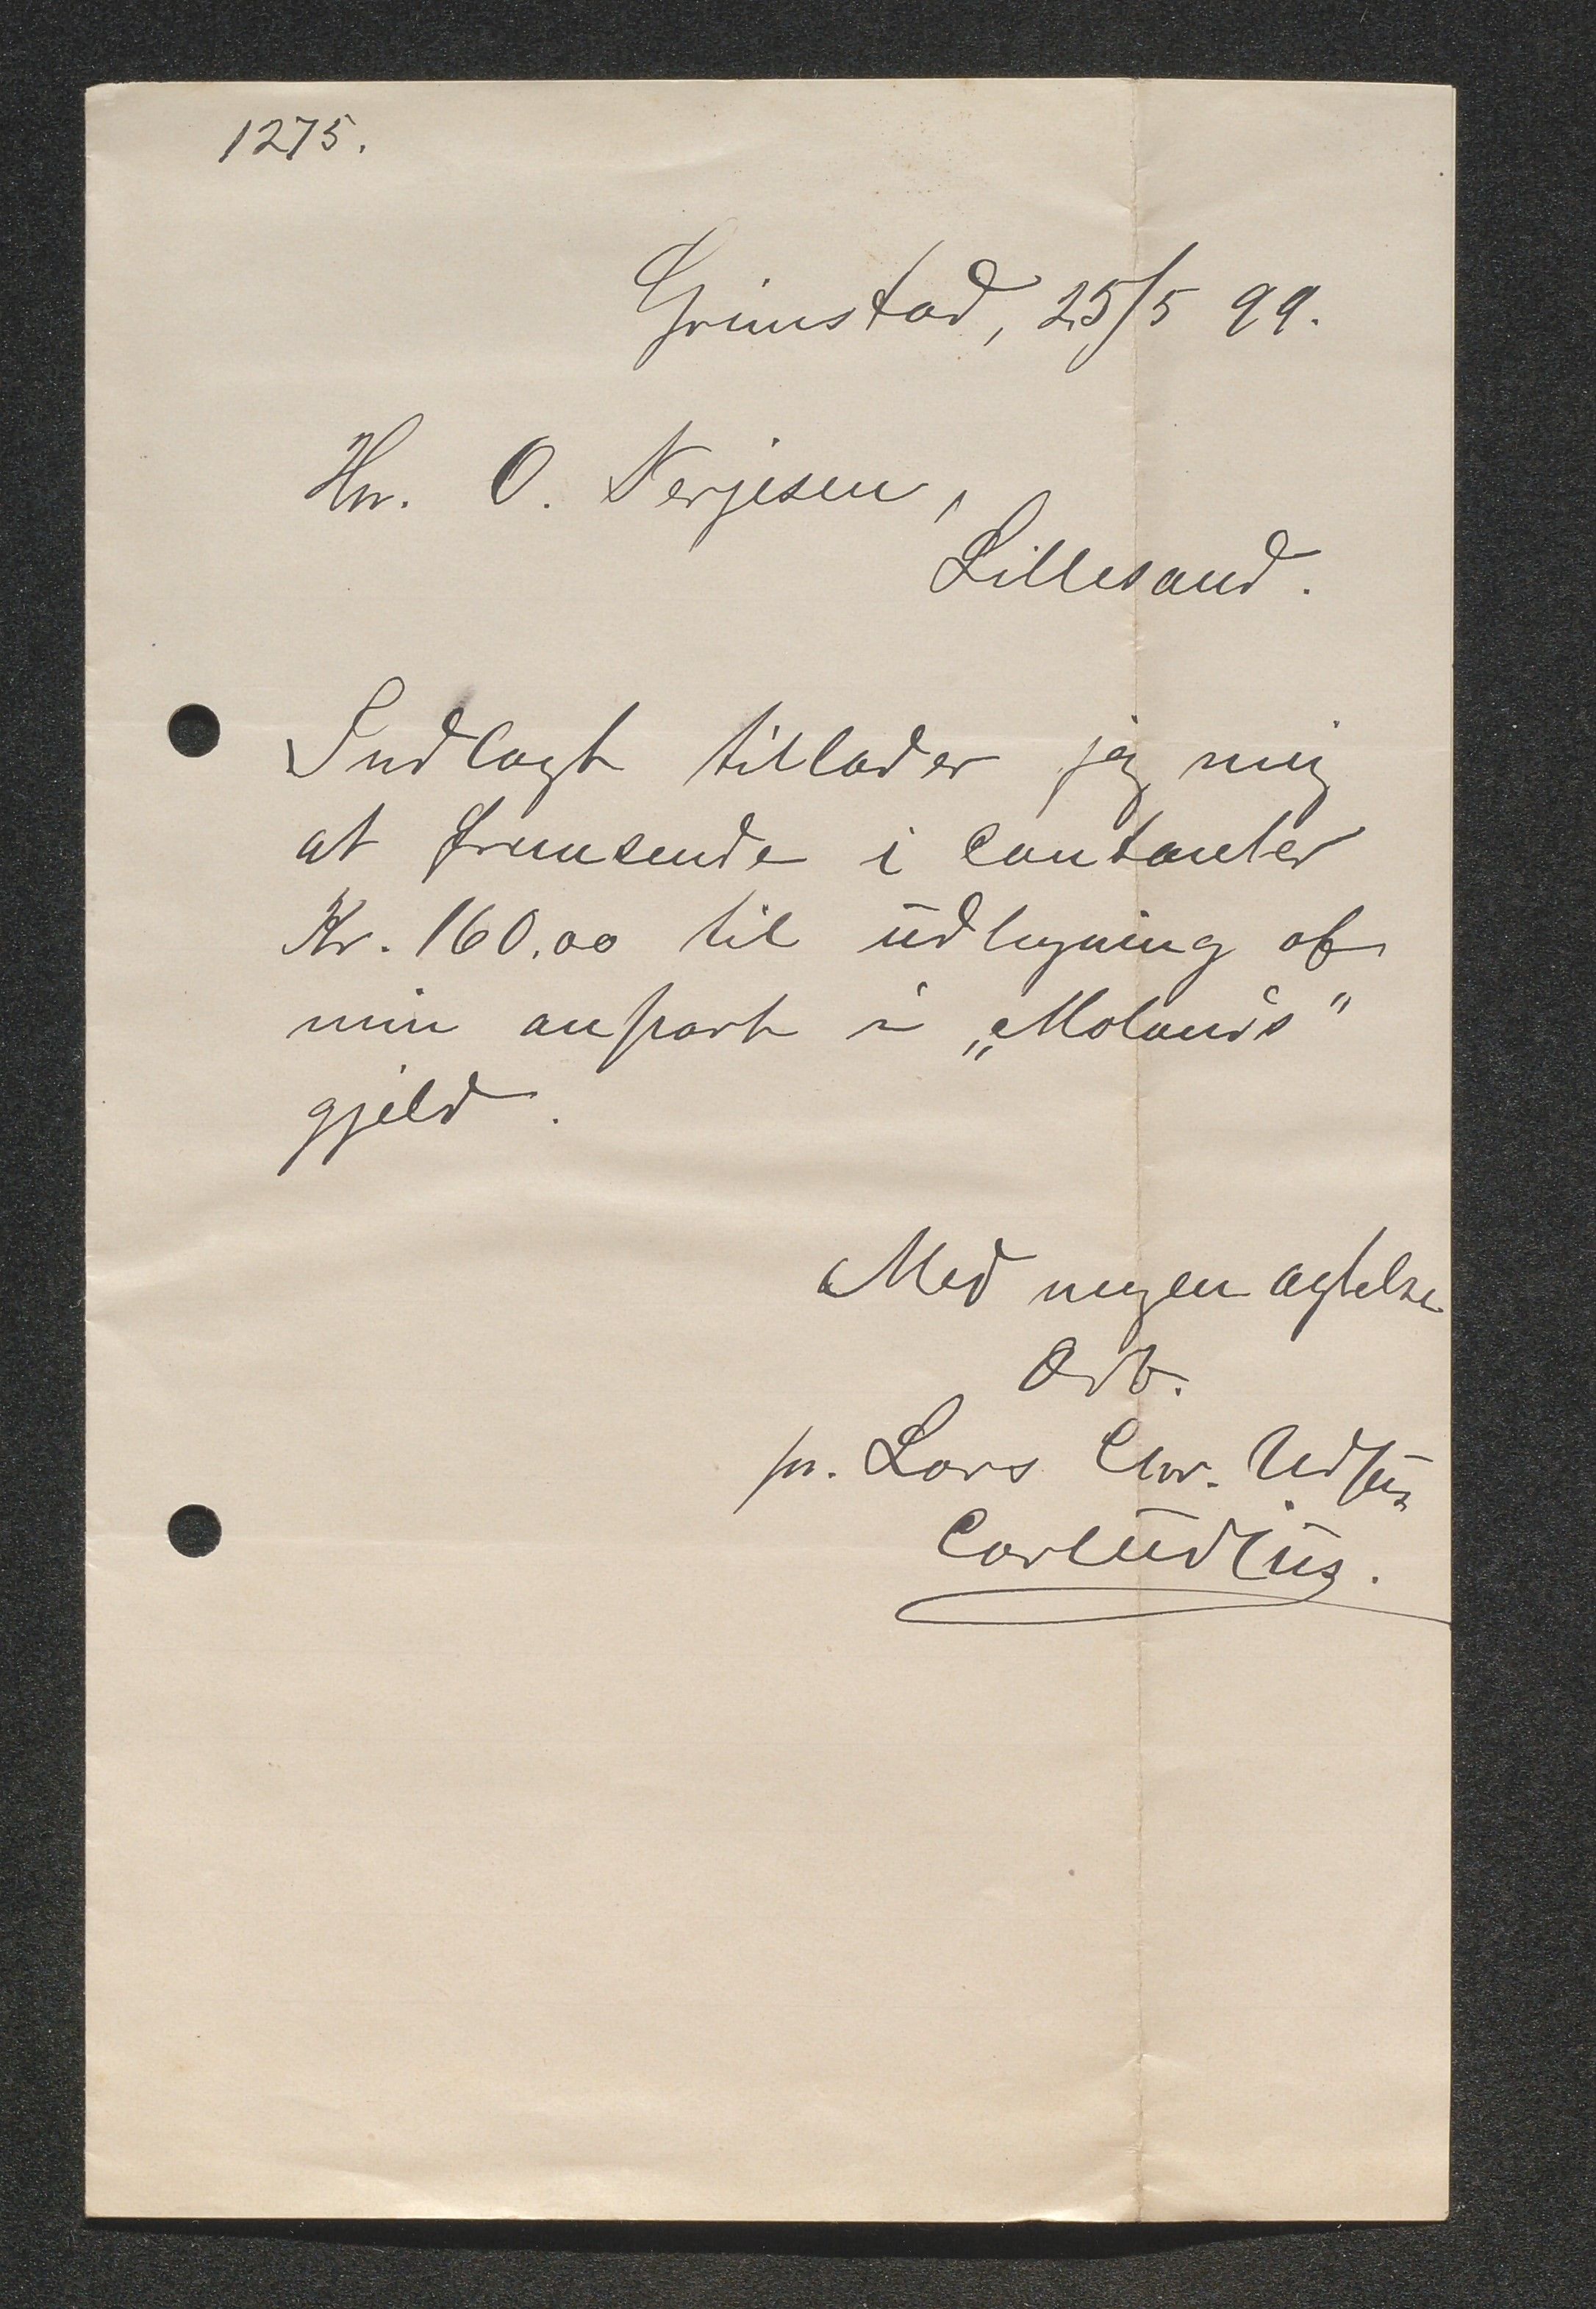 1275.
Grimstad, 25/5 99.
Hr. O. Terjesen,
Lillesand.
Indlagt tillader jeg mig
at fremsende i contanter
Kr. 160.00 til udligning af
min anpart i „Molands"
gjeld.
Med megen agtelse
Ærb.
pr. Lars Chr.